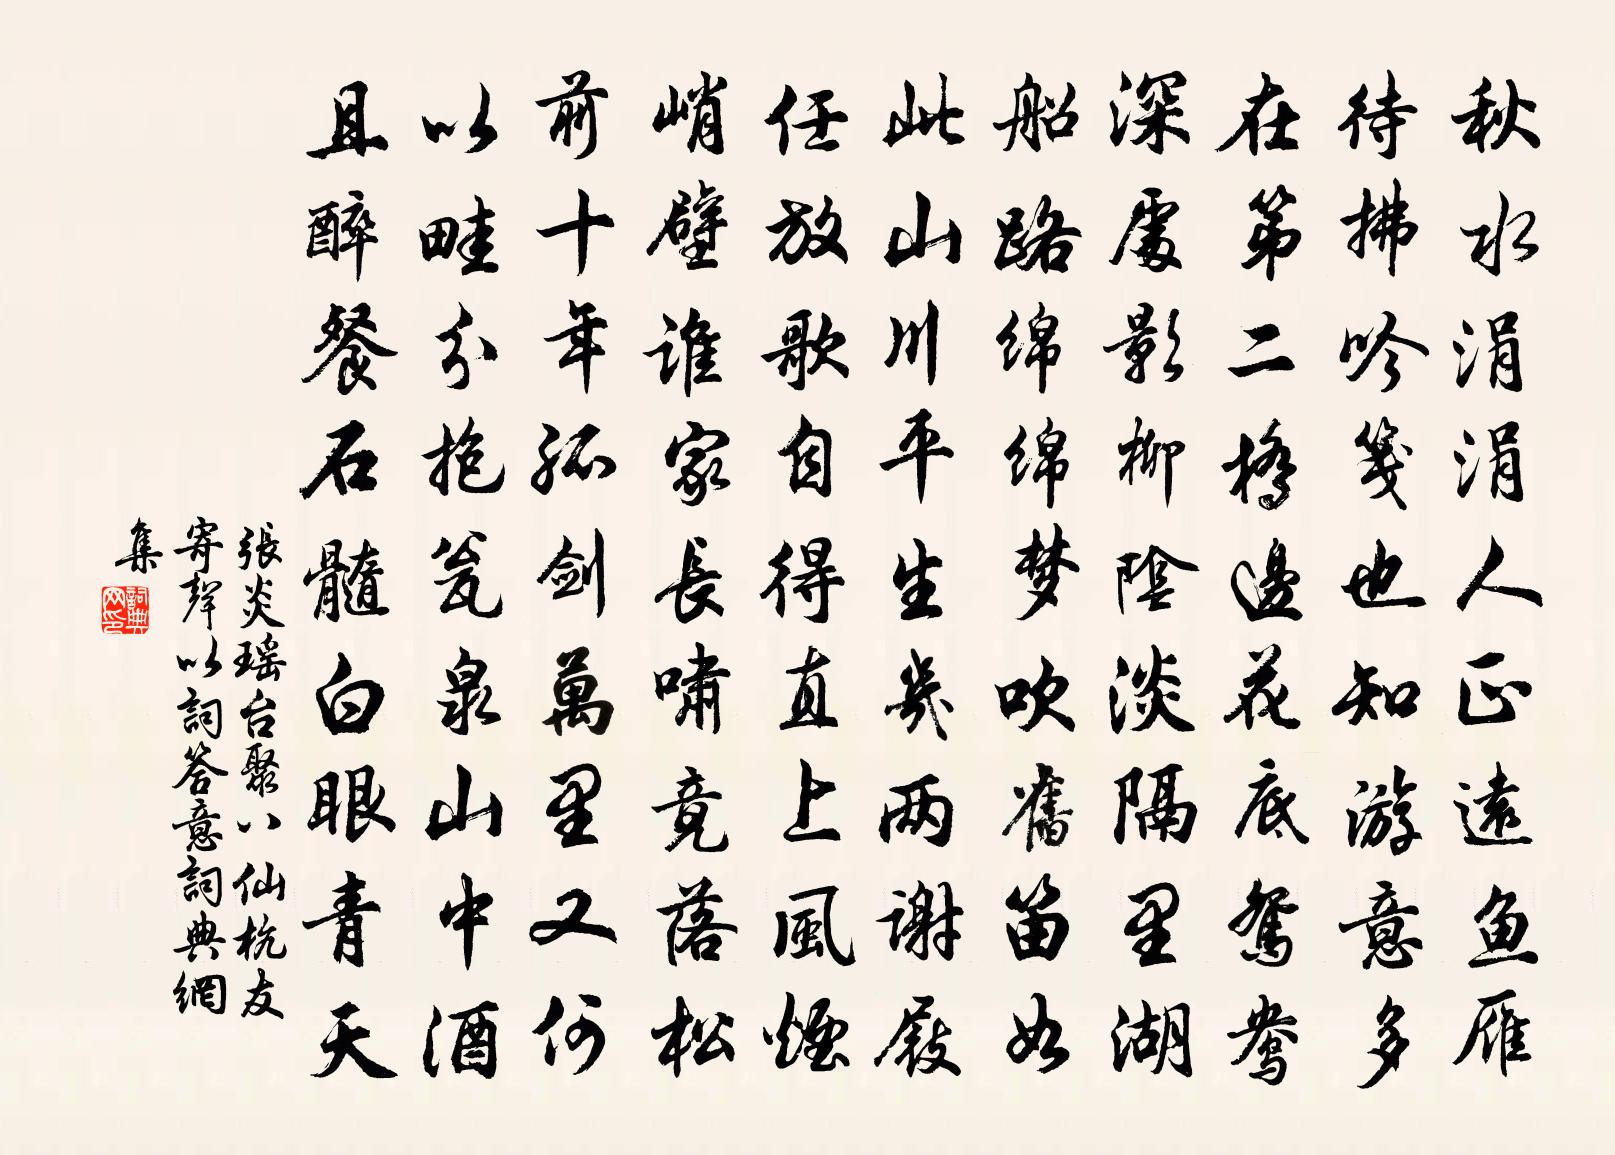 秋水涓涓人正遠魚雁
待拂吟箋也知游意多
在第二橋邊花底鴛鴦
深處影柳陰淡隔里湖
船路綿綿夢吹舊笛如
此山川平生幾兩謝屐
任放歌自得直上風煙
峭壁誰家長嘯竟落松
前十年孤劍萬里又何
以畦分抱瓮泉山中酒
且醉餐石髓白眼青天
張炎瑶台聚八仙杭友
寄聲以詞答意詞典網
集
詞典网印